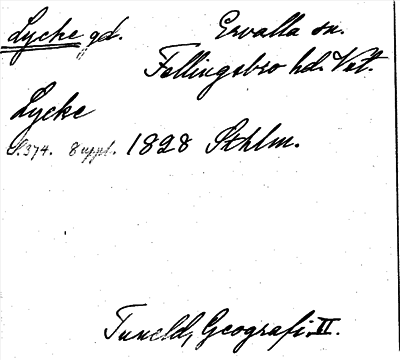 Lycke gd. Ervalla sn.
Fellingsbro hd. Vstm.
Lycke
S.374. 8 uppl. 1828 Sthlm.
Tuneld, Geografi. II.